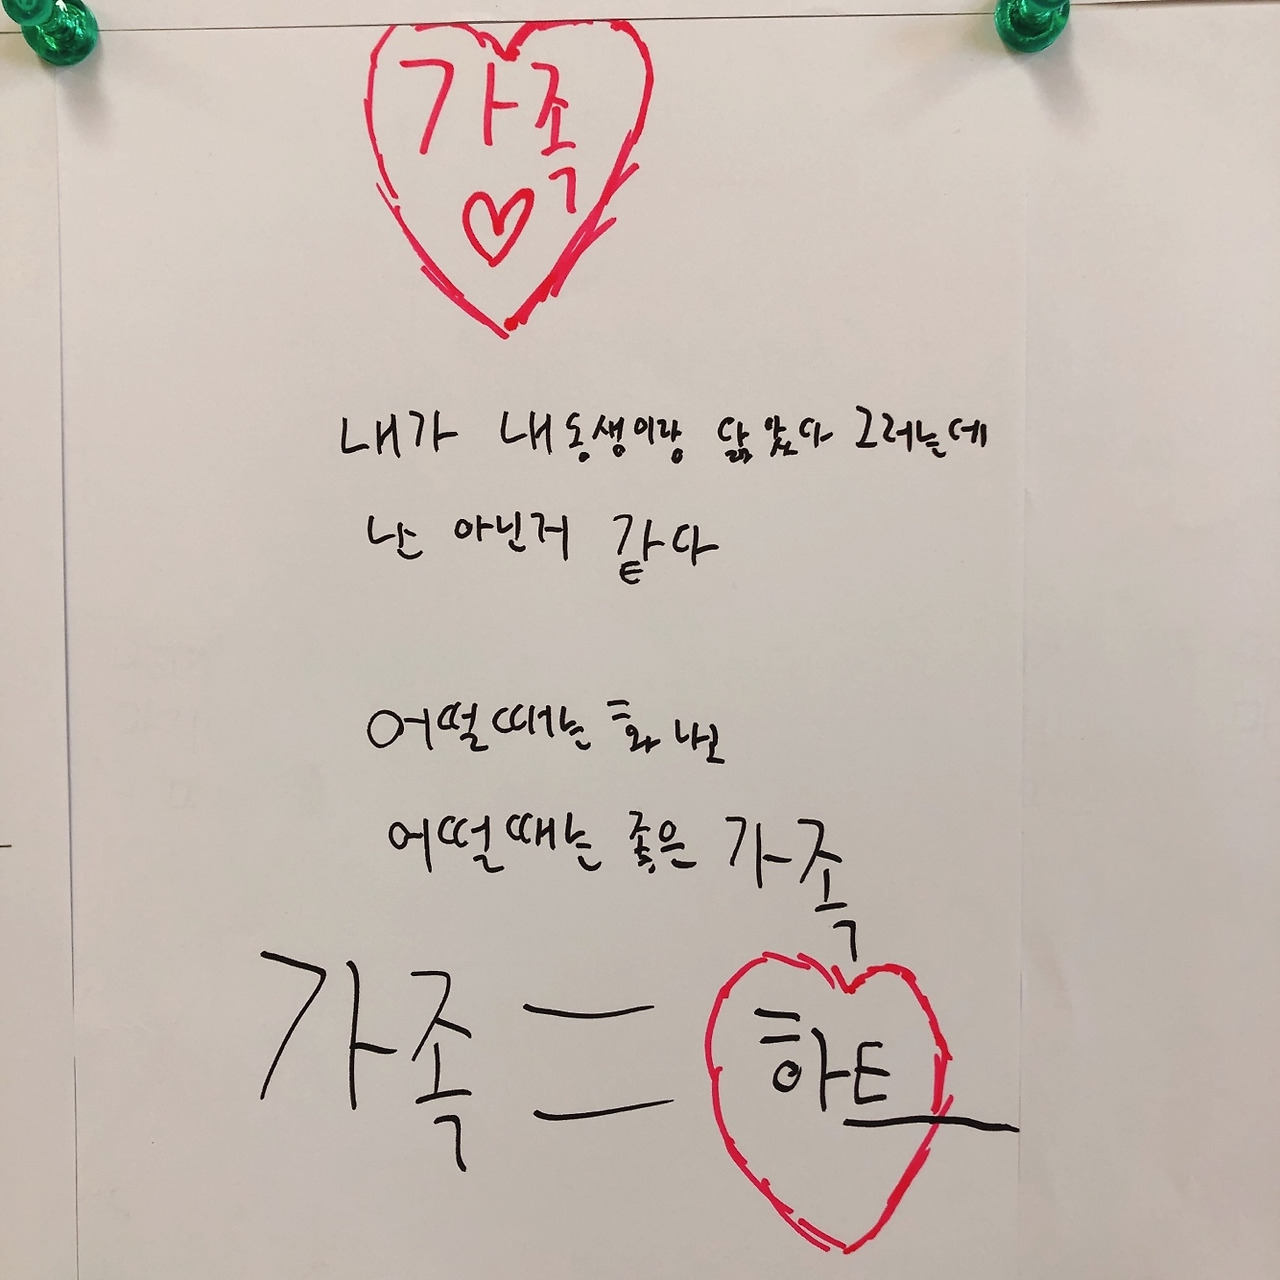 가족
♡
내가 내동생이랑 닮았다 그러는데
난 아닌거 같다
어떨때는 화나고
어떨때는 좋은 가족
가족 = 하트